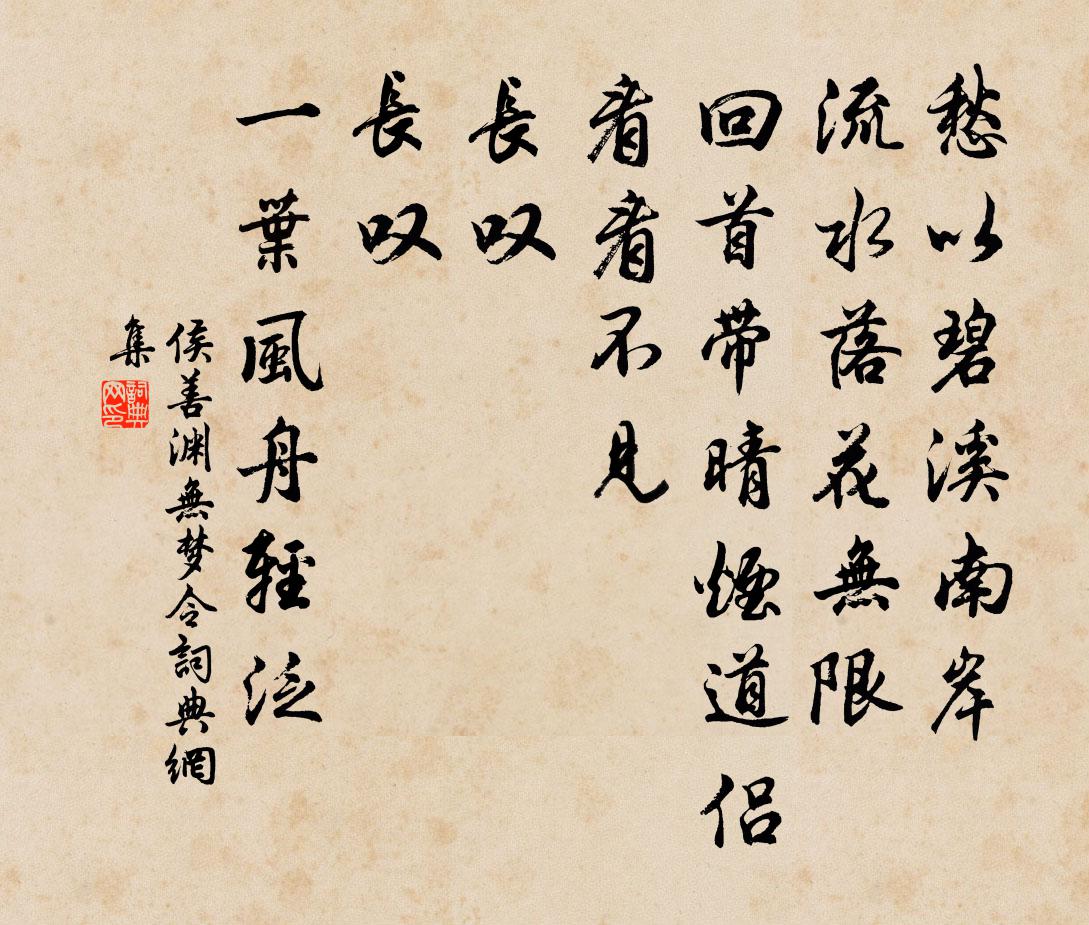 愁以碧溪南岸
流水落花無限
回首帶晴煙道侶
看看不見
長叹
長叹
一葉風舟輕泛
侯善渊無梦令詞典網
集
詞典
网印